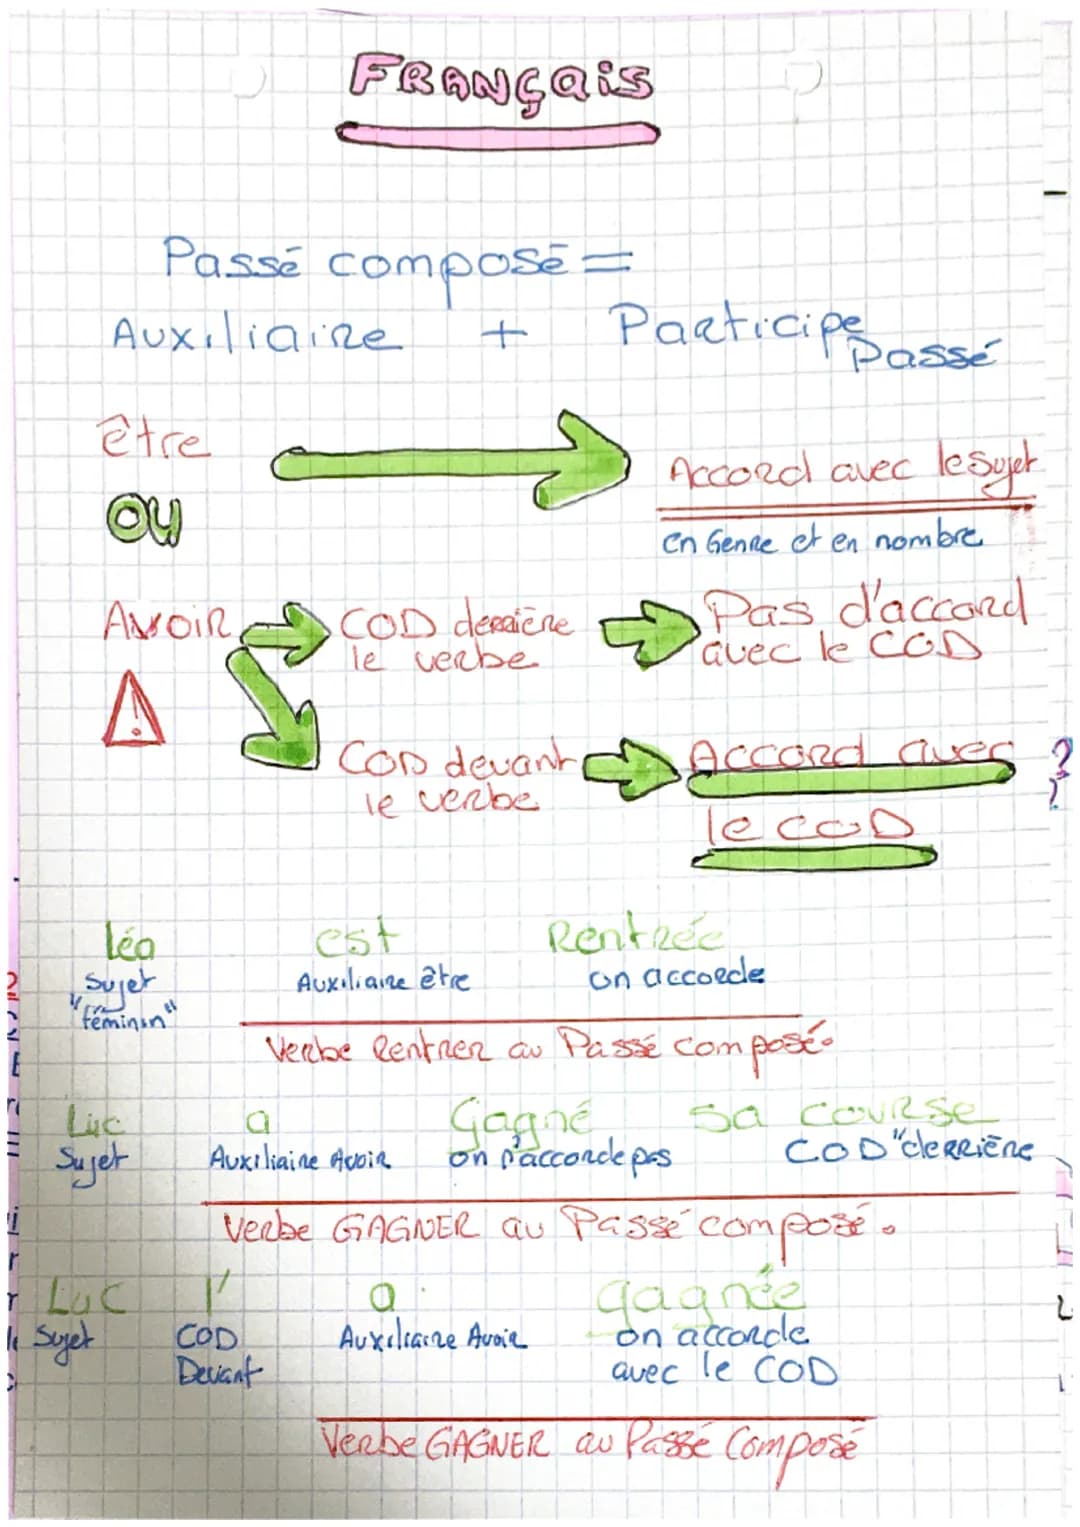 FRANÇais
Passé composé =
Auxiliaire + Participe
Passé
être
Accord avec le Sujet
OU
en Genre et en nombre
Avoir COD derrière Pas d'accord
le verbe avec le COD
!
COD devant Accord avec ?
le verbe le COD
Léa est Rentrée
Sujet Auxiliaire être on accorde
"féminin"
Verbe Rentrer au Passé composé.
Luc a Gagné sa course
Sujet Auxiliaire Avoir on n'accorde pas COD "derrière
Verbe GAGNER au Passé composé.
Luc l' a gagnée
Sujet COD Auxiliaire Avoir on accorde
Devant avec le COD
Verbe GAGNER au Passé Composé